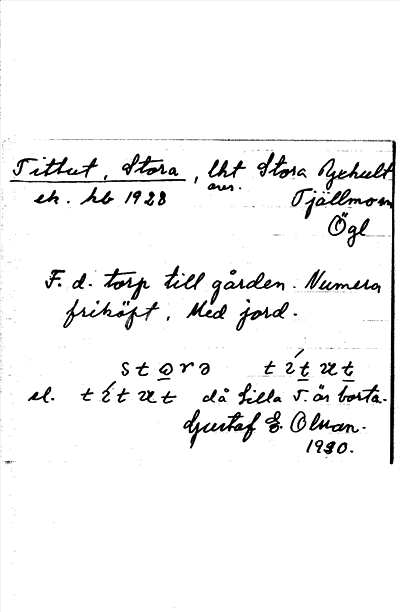 Tittut, Stora, lht Stora Ryckhult
ek. hb 1928 Tjällmo sn
Ögl
F. d. torp till gården. Numera
friköpt. Med jord.
stωrə títut
el. títut då Lilla T. är borta.
Gustaf E. Olsson.
1930.